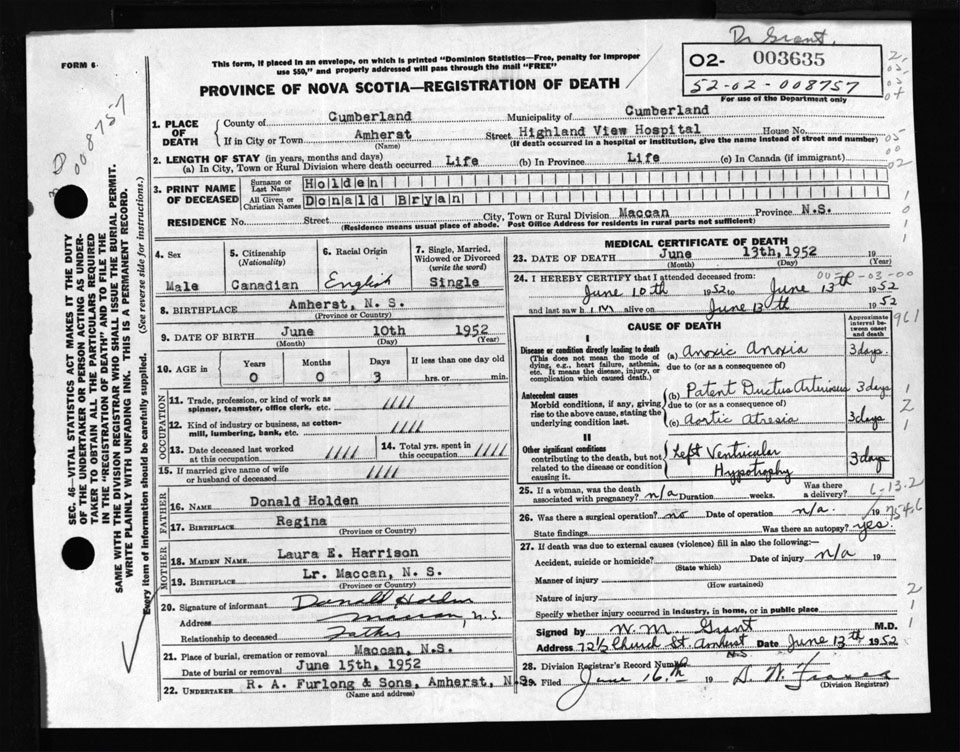 Dr Grant.
FORM 6
This form, if placed in an envelope, on which is printed "Dominion Statistics—Free, penalty for improper
use $50," and properly addressed will pass through the mail "FREE"
PROVINCE OF NOVA SCOTIA—REGISTRATION OF DEATH
02- 003635
52-02-008757
For use of the Department only
008757
SEC. 46—VITAL STATISTICS ACT MAKES IT THE DUTY
OF THE UNDERTAKER OR PERSON ACTING AS UNDER-
TAKER TO OBTAIN ALL THE PARTICULARS REQUIRED
IN THE "REGISTRATION OF DEATH" AND TO FILE THE
SAME WITH THE DIVISION REGISTRAR WHO SHALL ISSUE THE BURIAL PERMIT.
WRITE PLAINLY WITH UNFADING INK. THIS IS A PERMANENT RECORD.
Every item of information should be carefully supplied. (See reverse side for instructions.)
1. PLACE OF DEATH
County of Cumberland Municipality of Cumberland
If in City or Town Amherst Street Highland View Hospital House No.
(Name) (If death occurred in a hospital or institution, give the name instead of street and number)
2. LENGTH OF STAY (in years, months and days)
(a) In City, Town or Rural Division where death occurred Life (b) In Province Life (c) In Canada (if immigrant)
3. PRINT NAME OF DECEASED
Surname or Last Name Holden
All Given or Christian Names Donald Bryan
RESIDENCE No. Street City, Town or Rural Division Maccan Province N.S.
(Residence means usual place of abode. Post Office Address for residents in rural parts not sufficient)
4. Sex Male
5. Citizenship (Nationality) Canadian
6. Racial Origin English
7. Single, Married, Widowed or Divorced (write the word) Single
8. BIRTHPLACE Amherst, N. S.
(Province or Country)
9. DATE OF BIRTH June 10th 1952
(Month) (Day) (Year)
10. AGE in Years 0 Months 0 Days 3 If less than one day old hrs. or min.
OCCUPATION
11. Trade, profession, or kind of work as
spinner, teamster, office clerk, etc. ////
12. Kind of industry or business, as cotton-
mill, lumbering, bank, etc. ////
13. Date deceased last worked at this occupation //// 14. Total yrs. spent in this occupation ////
15. If married give name of wife or husband of deceased ////
FATHER
16. NAME Donald Holden
17. BIRTHPLACE Regina
(Province or Country)
MOTHER
18. MAIDEN NAME Laura E. Harrison
19. BIRTHPLACE Lr. Maccan, N. S.
(Province or Country)
20. Signature of informant Donald Holden
Address Maccan N.S.
Relationship to deceased Father
21. Place of burial, cremation or removal Maccan, N.S.
Date of burial or removal June 15th, 1952
22. UNDERTAKER R. A. Furlong & Sons, Amherst, N.S.
(Name and address)
MEDICAL CERTIFICATE OF DEATH
23. DATE OF DEATH June 13th, 1952 19
(Month) (Day) (Year)
24. I HEREBY CERTIFY that I attended deceased from:
June 10th 1952 to June 13th 1952
and last saw him alive on June 13th 1952
CAUSE OF DEATH
Approximate interval between onset and death
I
Disease or condition directly leading to death
(This does not mean the mode of dying, e.g., heart failure, asthenia, etc. It means the disease, injury, or complication which caused death.)
(a) Anoxic Anoxia 3 days.
due to (or as a consequence of)
Antecedent causes
Morbid conditions, if any, giving rise to the above cause, stating the underlying condition last.
(b) Patent Ductus Arteriosus 3 days
due to (or as a consequence of)
(c) Aortic Atresia 3 days
II
Other significant conditions
contributing to the death, but not related to the disease or condition causing it.
Left Ventricular
Hypotrophy 3 days
25. If a woman, was the death associated with pregnancy? n/a Duration weeks. Was there a delivery?
26. Was there a surgical operation? no Date of operation n/a. 19
State findings Was there an autopsy? yes.
754.6
27. If death was due to external causes (violence) fill in also the following:—
Accident, suicide or homicide? Date of injury n/a 19
(State which)
Manner of injury
(How sustained)
Nature of injury
Specify whether injury occurred in industry, in home, or in public place
Signed by W. M. Grant M.D.
Address 72½ Church St. Amherst N.S. Date June 13th 1952
28. Division Registrar's Record Number
29. Filed June 16th 19
(Division Registrar)